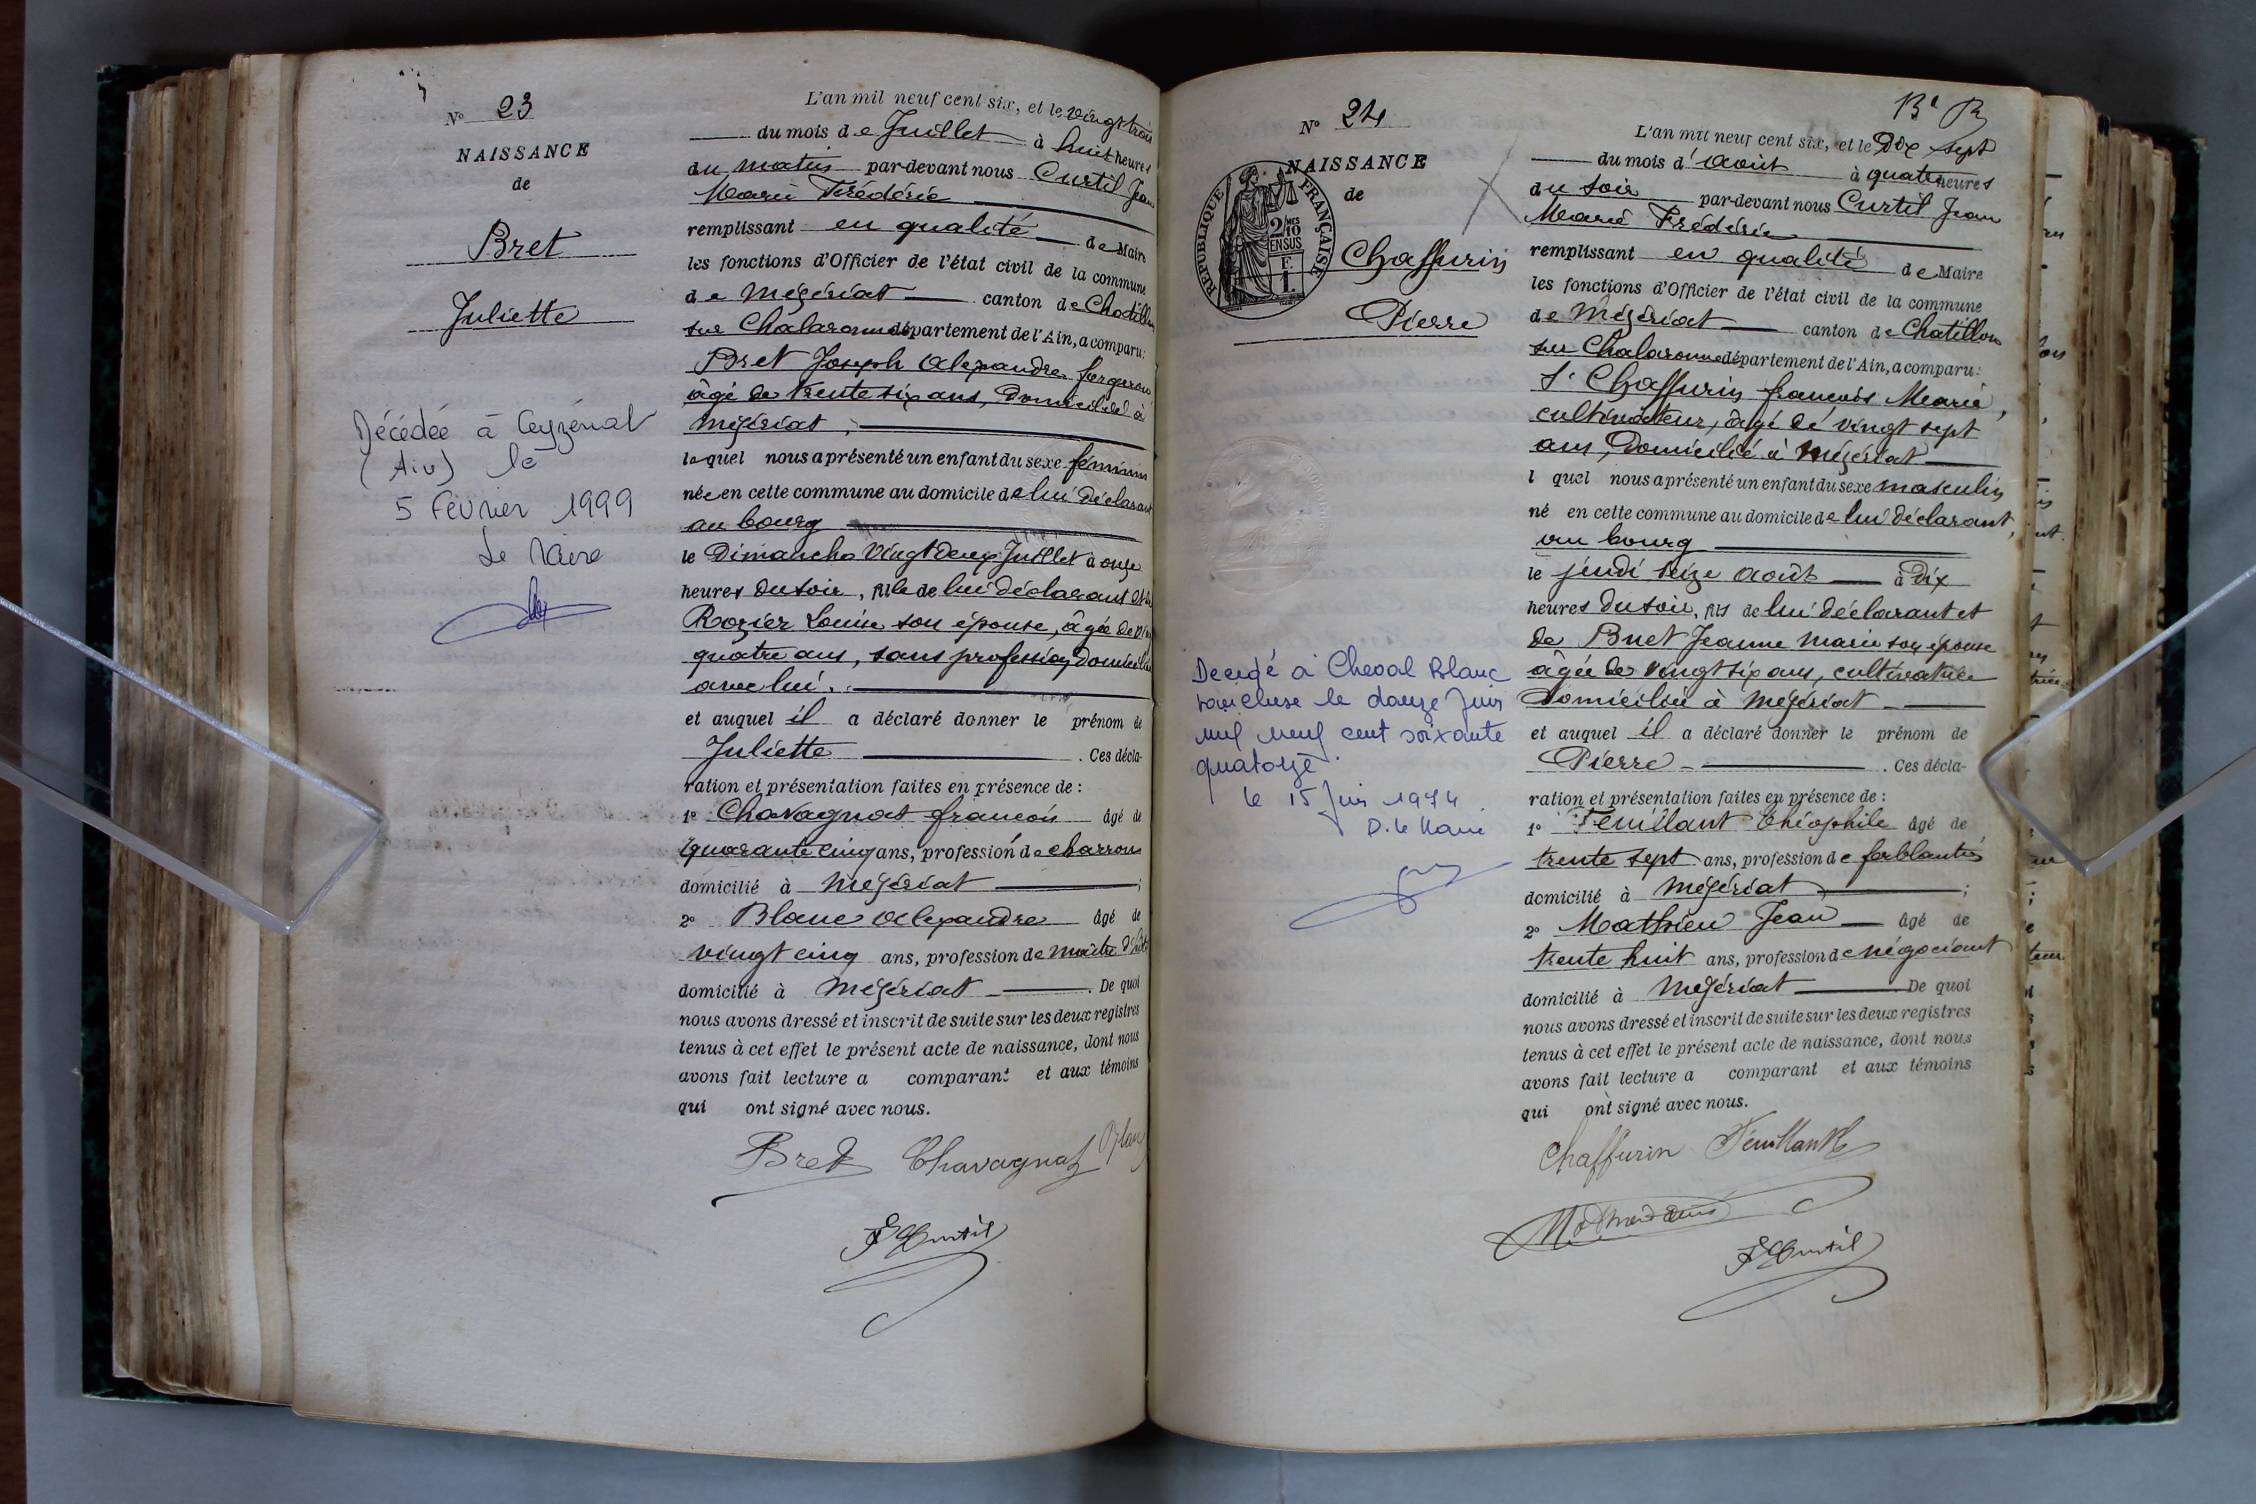 N° 23
NAISSANCE
de
Bret
Juliette
Décédée à Ceyzériat
(Ain) le
5 Février 1999
Le Maire
L'an mil neuf cent six, et le vingt trois
du mois de Juillet à huit heures
du matin par-devant nous Curtil Jean
Marie Frédéric
remplissant en qualité de Maire
les fonctions d'Officier de l'état civil de la commune
de Mézériat canton de Chatillon
sur Chalaronne département de l'Ain, a comparu:
Bret Joseph Alexandre forgeron
âgé de trente six ans, domicilié à
Mézériat,
lequel nous a présenté un enfant du sexe féminin
née en cette commune au domicile de lui déclarant
au bourg
le Dimanche vingt deux Juillet à onze
heures du soir, fille de lui déclarant et de
Rozier Louise son épouse, âgée de
quatre ans, sans profession, domiciliée
avec lui.
et auquel il a déclaré donner le prénom de
Juliette . Ces décla-
ration et présentation faites en présence de :
1° Chavagnat françois âgé de
quarante cinq ans, profession de charron
domicilié à Mézériat ;
2° Blanc Alexandre âgé de
vingt cinq ans, profession de maître d'hôtel
domicilié à Mézériat . De quoi
nous avons dressé et inscrit de suite sur les deux registres
tenus à cet effet le présent acte de naissance, dont nous
avons fait lecture a comparant et aux témoins
qui ont signé avec nous.
Bret Chavagnat Blanc
F Curtil
N° 24
NAISSANCE
de
RÉPUBLIQUE FRANÇAISE
2/10 MES
EN SUS
F.
1.
Chaffurin
Pierre
Decedé à Cheval Blanc
vaucluse le douze juin
mil neuf cent soixante
quatorze.
le 15 Juin 1974.
D. le Maire
B^t B
L'an mil neuf cent six, et le Dix sept
du mois d'août à quatre heures
du soir par-devant nous Curtil Jean
Marie Frédéric
remplissant en qualité de Maire
les fonctions d'Officier de l'état civil de la commune
de Mézériat canton de Chatillon
sur Chalaronne département de l'Ain, a comparu:
S^r Chaffurin françois Marie,
cultivateur, âgé de vingt sept
ans, Domicilié à Mézériat
l quel nous a présenté un enfant du sexe masculin
né en cette commune au domicile de lui déclarant,
au bourg
le jeudi seize août à Dix
heures du soir, fils de lui déclarant et
de Buet Jeanne Marie son épouse
âgée de vingt six ans, cultivatrice
domiciliée à Mézériat
et auquel il a déclaré donner le prénom de
Pierre . Ces décla-
ration et présentation faites en présence de :
1° Feuillant Théophile âgé de
trente sept ans, profession de ferblantier
domicilié à Mézériat ;
2° Mathieu Jean âgé de
trente huit ans, profession de négociant
domicilié à Mézériat De quoi
nous avons dressé et inscrit de suite sur les deux registres
tenus à cet effet le présent acte de naissance, dont nous
avons fait lecture a comparant et aux témoins
qui ont signé avec nous.
Chaffurin Feuillant
F Curtil